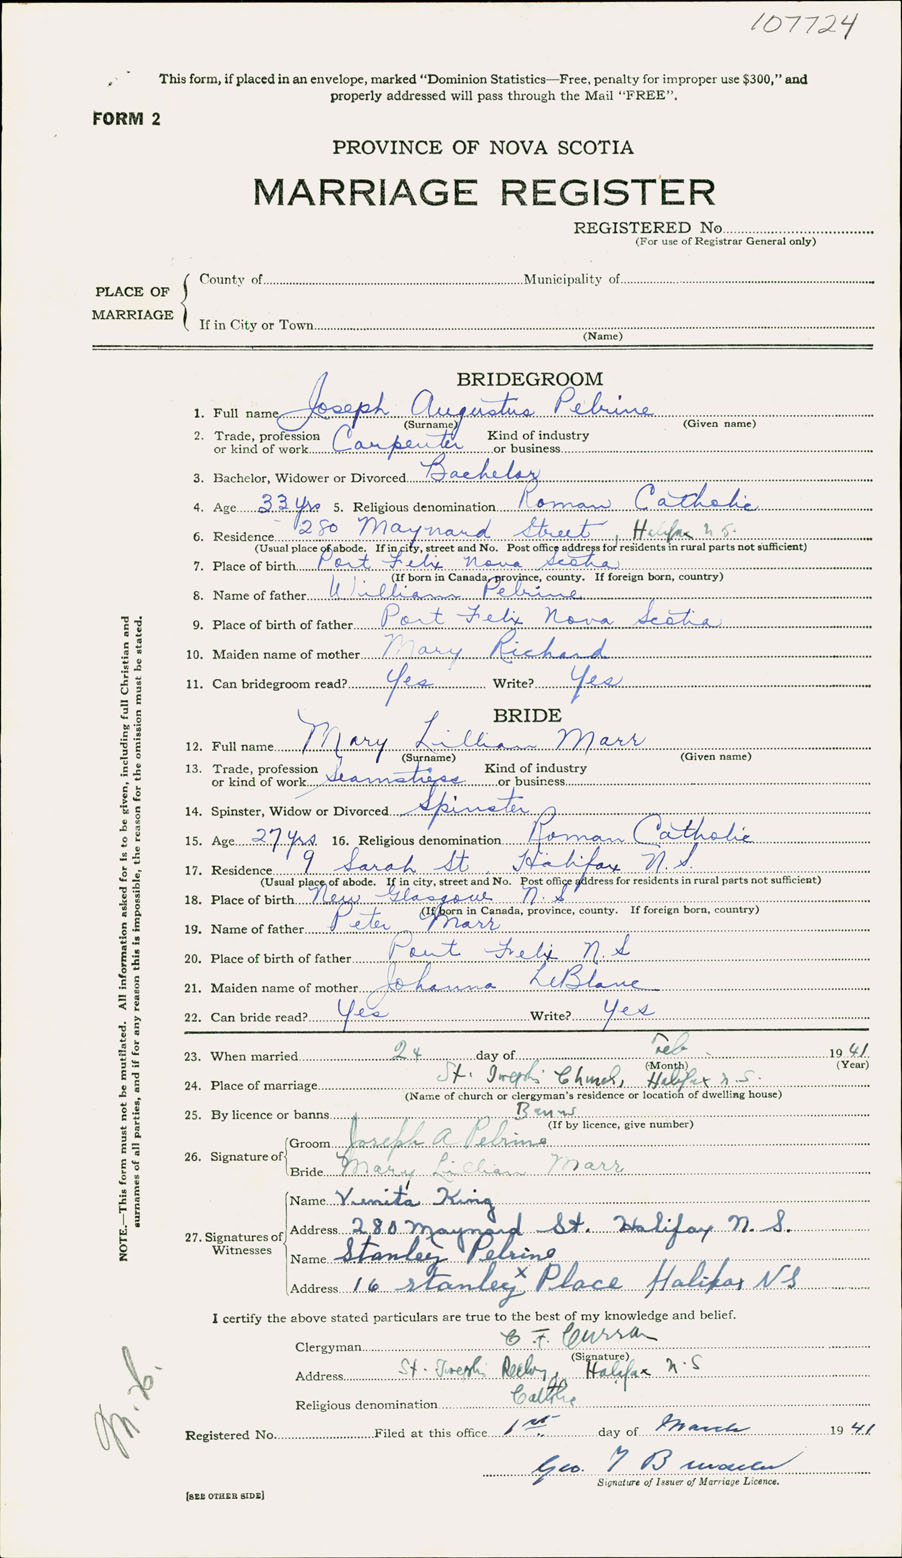 107724
This form, if placed in an envelope, marked “Dominion Statistics—Free, penalty for improper use $300,” and
properly addressed will pass through the Mail “FREE”.
FORM 2
PROVINCE OF NOVA SCOTIA
MARRIAGE REGISTER
REGISTERED No
(For use of Registrar General only)
PLACE OF MARRIAGE
County of Municipality of
If in City or Town
(Name)
BRIDEGROOM
1. Full name Joseph Augustus Pelrine
(Surname) (Given name)
2. Trade, profession or kind of work Carpenter Kind of industry or business
3. Bachelor, Widower or Divorced Bachelor
4. Age 33 yrs 5. Religious denomination Roman Catholic
6. Residence 280 Maynard Street, Halifax N.S.
(Usual place of abode. If in city, street and No. Post office address for residents in rural parts not sufficient)
7. Place of birth Port Felix Nova Scotia
(If born in Canada, province, county. If foreign born, country)
8. Name of father William Pelrine
9. Place of birth of father Port Felix Nova Scotia
10. Maiden name of mother Mary Richard
11. Can bridegroom read? Yes Write? Yes
BRIDE
12. Full name Mary Lillian Marr
(Surname) (Given name)
13. Trade, profession or kind of work Seamstress Kind of industry or business
14. Spinster, Widow or Divorced Spinster
15. Age 27 yrs 16. Religious denomination Roman Catholic
17. Residence 9 Sarah St, Halifax N.S
(Usual place of abode. If in city, street and No. Post office address for residents in rural parts not sufficient)
18. Place of birth New Glasgow N.S
(If born in Canada, province, county. If foreign born, country)
19. Name of father Peter Marr
20. Place of birth of father Port Felix N.S
21. Maiden name of mother Johanna LeBlanc
22. Can bride read? Yes Write? Yes
23. When married 24 day of Feb. 1941
(Month) (Year)
24. Place of marriage St. Joseph's Church, Halifax N.S.
(Name of church or clergyman's residence or location of dwelling house)
25. By licence or banns Banns
(If by licence, give number)
26. Signature of
Groom Joseph A Pelrine
Bride Mary Lillian Marr
27. Signatures of Witnesses
Name Venita King
Address 280 Maynard St. Halifax N.S.
Name Stanley Pelrine
Address 16 Stanley Place Halifax NS
I certify the above stated particulars are true to the best of my knowledge and belief.
Clergyman C. F. Curran
(Signature)
Address St. Joseph's Halifax N.S
Religious denomination Catholic
Registered No. Filed at this office 1st day of March 1941
Geo. T
Signature of Issuer of Marriage Licence.
[SEE OTHER SIDE]
NOTE.—This form must not be mutilated. All information asked for is to be given, including full Christian and
surnames of all parties, and if for any reason this is impossible, the reason for the omission must be stated.